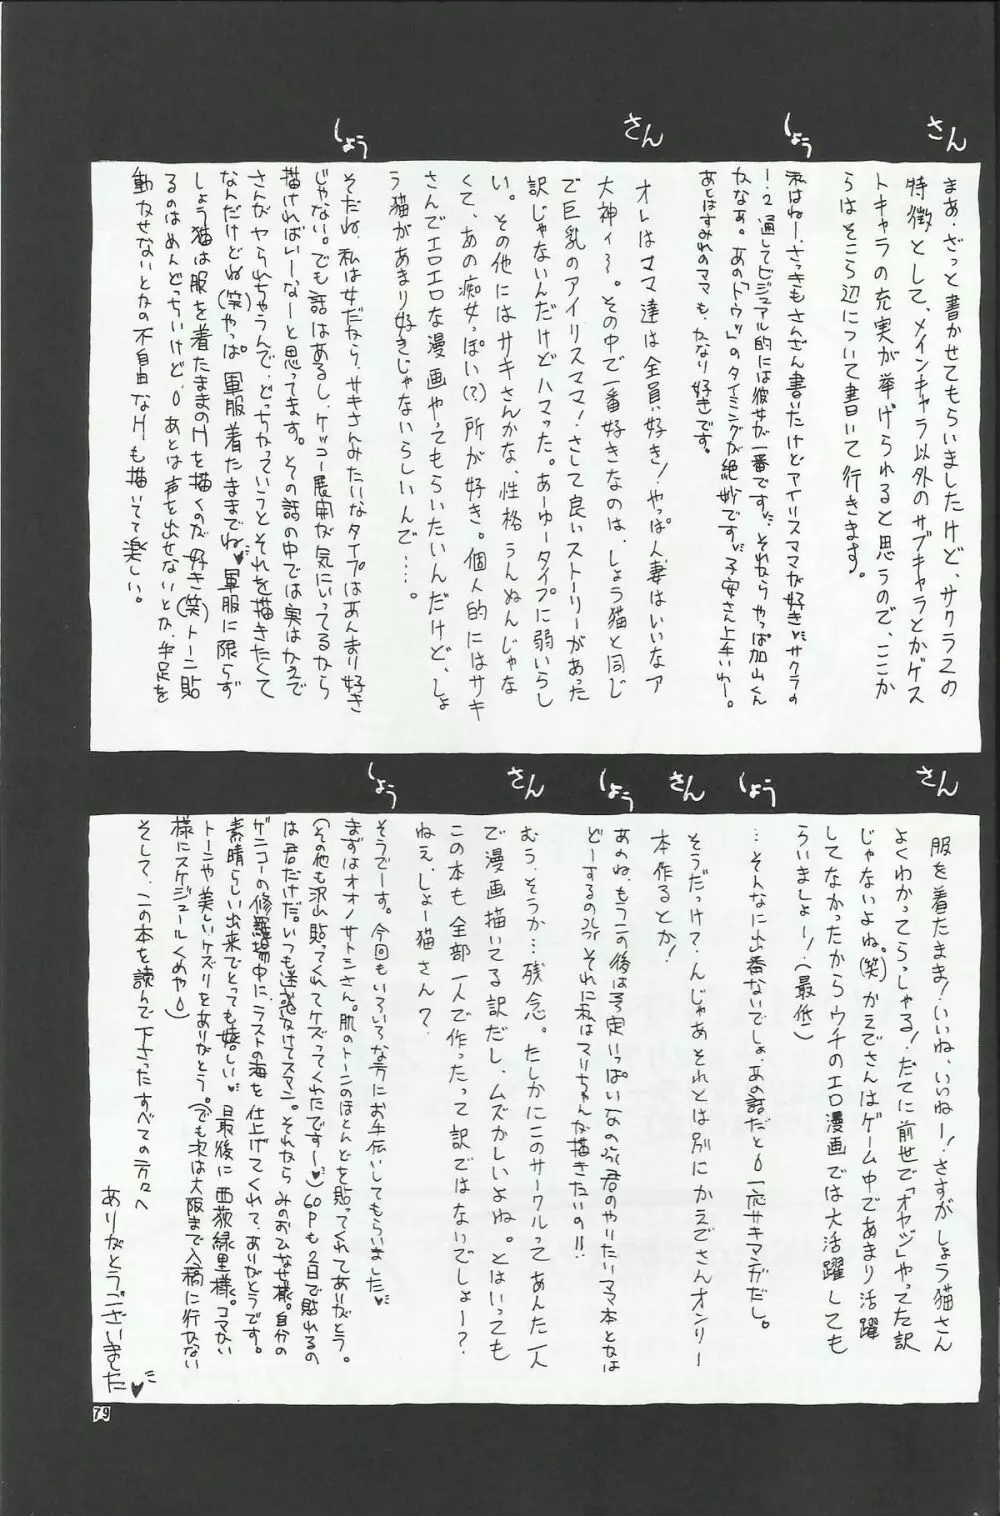 さん
まあ、ざっと書かせてもらいましたけど、サクラ2の
特徴として、メインキャラ以外のサブキャラとかゲス
トキャラの充実が挙げられると思うので、ここか
らはそこら辺について書いて行きます。
しょう
私はねー、さっきもさんざん書いたけどアイリスママが好き♥サクラの
1・2通してビジュアル的には彼女が一番です。それからやっぱ加山くん
かなぁ。あの「トウッ」のタイミングが絶妙です。子安さん上手いわー。
あとはすみれのママも、かなり好きです。
さん
オレはママ達は全員好き!やっぱ人妻はいいなァ
大神ィ〜。その中で一番好きなのは、しょう猫と同じ
で巨乳のアイリスママ!さして良いストーリーがあった
訳じゃないんだけどハマッた。あーゆータイプに弱いらし
い。その他にはサキさんかな、性格うんぬんじゃな
くて、あの痴女っぽい(?)所が好き。個人的にはサキ
さんでエロエロな漫画やってもらいたいんだけど、しょ
う猫があまり好きじゃないらしいんで……。
しょう
そだね、私は女だから、サキさんみたいなタイプはあんまり好き
じゃない。でも話はあるし、ケッコー展開が気にいってるなら
描ければいーなーと思ってます。その話の中では実はかえで
さんがヤられちゃうんで、どっちかっていうとそれを描きたくて
なんだけどね(笑)やっぱ軍服着たままでね♥軍服に限らず
しょう猫は服を着たままのHを描くのが好き(笑)トーン貼
るのはめんどっちいけど、あとは声を出せないとか、手足を
動かせないとかの不自由なHも描いてて楽しい。
さん
服を着たまま!いいね、いいねー!さすがしょう猫さん
よくわかってらっしゃる!だてに前世で「オヤジ」やってた訳
じゃないよね。(笑)かえでさんはゲーム中であまり活躍
してなかったからウチのエロ漫画では大活躍しても
らいましょー!(最低)
しょう
…そんなに出番ないでしょ、あの話だと。一応サキマンガだし。
さん
そうだっけ?んじゃあそれとは別にかえでさんオンリー
本作るとか!
しょう
あのね、もうこの後は予定いっぱいなの。君のやりたいママ本とかは
どーするの。それに私はマリちゃんが描きたいの!!
さん
むう、そうか…残念。たしかにこのサークルってあんた一人
で漫画描いてる訳だし、ムズかしいよね。とはいっても
この本も全部一人で作ったって訳ではないでしょー?
ねぇ、しょー猫さん?
しょう
そうでーす。今回もいろいろな方にお手伝いしてもらいました♥
まずはオオノサトシさん。肌のトーンのほとんどを貼ってくれてありがとう。
(その他も沢山貼ってくれてケズってくれたですー♥)60Pも2日で貼れるの
は君だけだ。いつも迷惑かけてスマン。それから みのおひなせ様。自分の
ゲンコーの修羅場中に、ラストの海を仕上げてくれて、ありがとうです。
素晴らしい出来でとっても嬉しい♥ 最後に西荻緑里様。コマかい
トーンや美しいケズリをありがとう。(でも次は大阪まで入稿に行かない
様にスケジュールくめや)
そして、この本を読んで下さったすべての方々へ
ありがとうございました♥
79